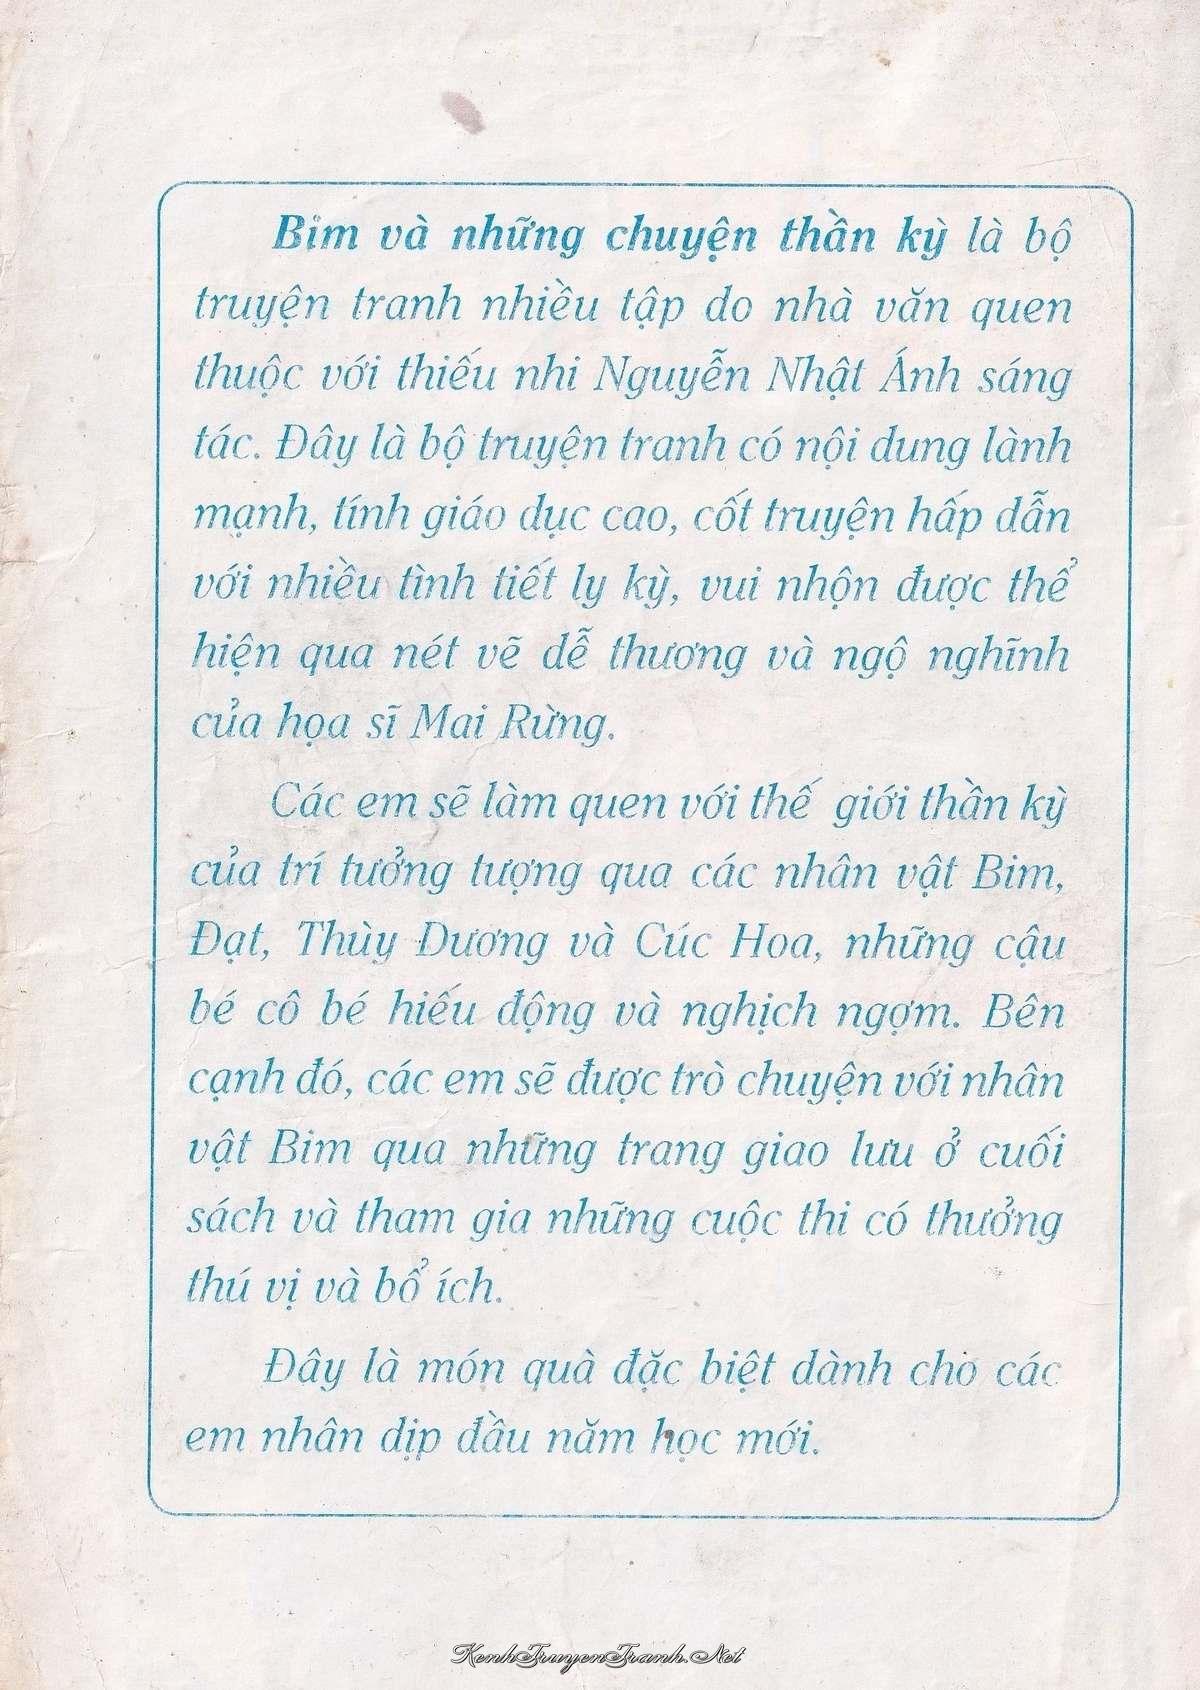 Bim và những chuyện thần kỳ là bộ
truyện tranh nhiều tập do nhà văn quen
thuộc với thiếu nhi Nguyễn Nhật Ánh sáng
tác. Đây là bộ truyện tranh có nội dung lành
mạnh, tính giáo dục cao, cốt truyện hấp dẫn
với nhiều tình tiết ly kỳ, vui nhộn được thể
hiện qua nét vẽ dễ thương và ngộ nghĩnh
của họa sĩ Mai Rừng.
Các em sẽ làm quen với thế giới thần kỳ
của trí tưởng tượng qua các nhân vật Bim,
Đạt, Thùy Dương và Cúc Hoa, những cậu
bé cô bé hiếu động và nghịch ngợm. Bên
cạnh đó, các em sẽ được trò chuyện với nhân
vật Bim qua những trang giao lưu ở cuối
sách và tham gia những cuộc thi có thưởng
thú vị và bổ ích.
Đây là món quà đặc biệt dành cho các
em nhân dịp đầu năm học mới.
KenhTruyenTranh.Net